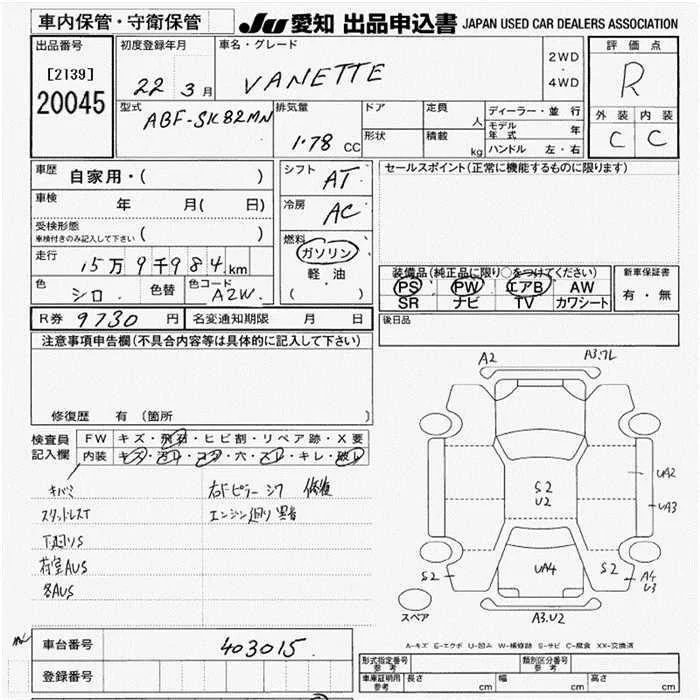 車内保管・守衛保管
JU 愛知 出品申込書 JAPAN USED CAR DEALERS ASSOCIATION
出品番号
[2139]
20045
初度登録年月
22 3月
車名・グレード
VANETTE
2WD
・
4WD
評価点
R
外装 内装
C C
型式
ABF-SK82MN
排気量
1.78 CC
ドア
形状
定員
人
積載
kg
ディーラー・並行
モデル年式 年
ハンドル 左・右
車歴
自家用・( )
車検
年 月( 日)
受検形態
車検付きのみ記入して下さい ( )
走行
15万9千984km
色
シロ
色替
色コード
A2W
シフト
AT
冷房
AC
燃料
ガソリン
軽油
( )
セールスポイント(正常に機能するものに限ります)
装備品(純正品に限り○をつけてください)
PS PW エアB AW
SR ナビ TV カワシート
新車保証書
有・無
後日品
R券 9730 円
名変通知期限 月 日
注意事項申告欄(不具合内容等は具体的に記入して下さい)
修復歴 有 (箇所 )
検査員
記入欄
FW キズ・飛石・ヒビ割・リペア跡・X要
内装 キズ・汚レ・コゲ・穴・スレ・キレ・破レ
キバミ
スタッドレスT
下廻りS
荷室AUS
各AUS
右Fピラー シワ 修復
エンジン廻り異音
A2
A3.フL
S2
U2
UA2
UA3
UA4
S2
S2
A4
U3
A3.U2
スペア
A-キズ E-エクボ U-凹み W-補修跡 S-サビ C-腐食 XX-交換済
車台番号
403015
登録番号
形式指定番号
参考
類別区分番号
参考
車庫証明用
参考
長さ cm
幅 cm
高さ cm